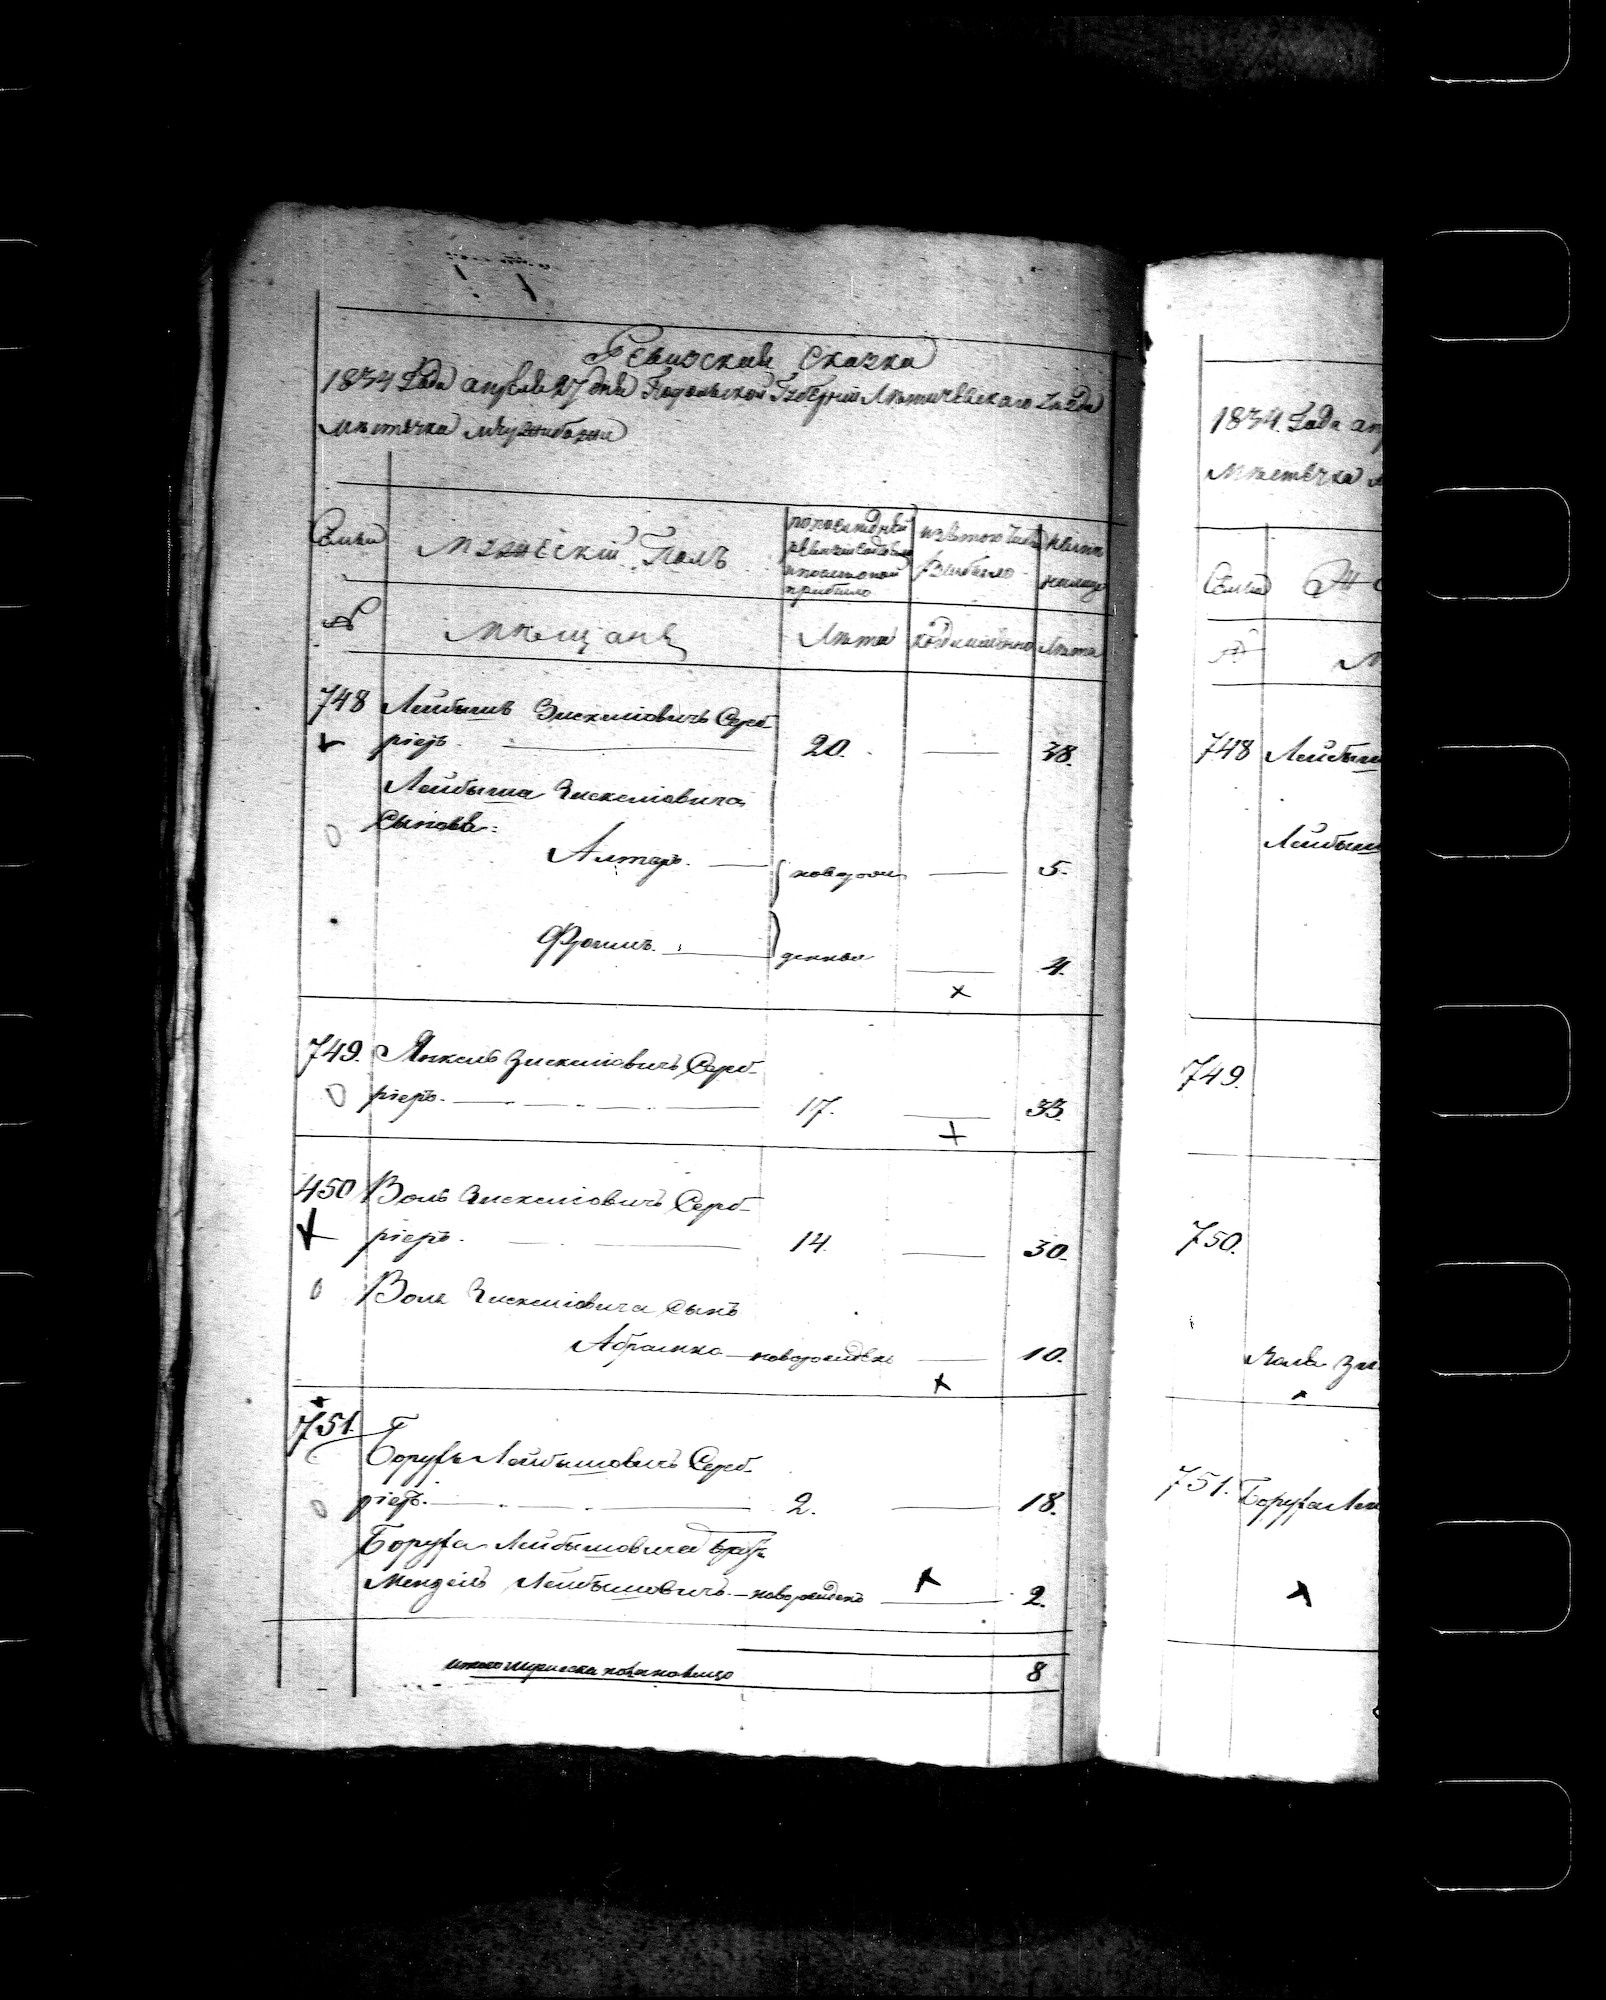 Ревизская сказка
1834 Года апреля 27 дня Подольской Губерній Летичевскаго Уезда
местечка Межибожи
Семьи
Мужескій Полъ
по последней ревизіи состояло и после оной прибыло
изъ того числа выбыло
ныне на лицо
№
Мещане
Лета
когда именно
Лета
748 Лейбышъ Зискиновичъ Серб-
ріеръ. 20. 38.
Лейбыша Зискиновича
Сыновья:
Алтеръ. новорож 5.
Фроимъ. денные 4.
749. Янкель Зискиновичъ Серб-
ріеръ. 17. 33
450 Воль Зискиновичъ Серб-
ріеръ. 14. 30.
Воля Зискиновича Сынъ
Абрамко новорожденъ 10.
751. Борухъ Лейбышовичъ Серб-
ріеръ. 2. 18.
Боруха Лейбышовича братъ
Мендель Лейбышовичъ новорожденъ 2.
8
1834. Года апр
Местечка
Семьи
№
748 Лейбыш
Лейбыш
749.
750.
Воля Зис
751. Боруха Лей